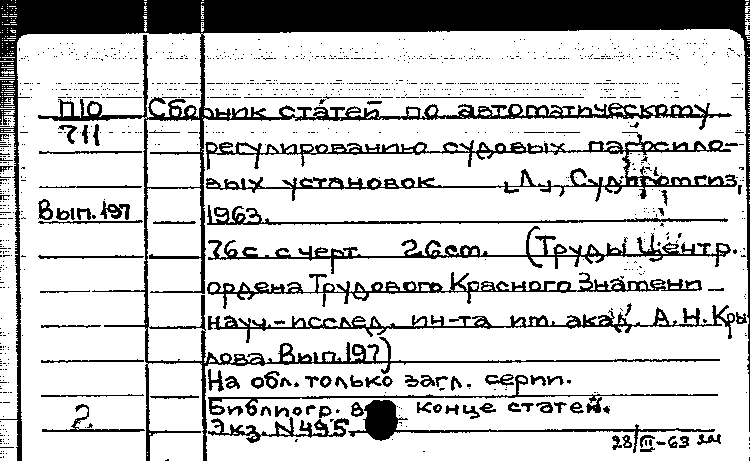 П10 Сборник статей по автоматическому
711
регулированию судовых паросило-
вых установок. [Л.], Судпромгиз,
Вып.197 1963.
76с. с черт. 26см. (Труды Центр.
ордена Трудового Красного Знамени
науч.-исслед. ин-та им. акад. А.Н.Кры-
лова. Вып.197)
На обл. только загл. серии.
Библиогр. в конце статей.
2 Экз. N495.
28/III-63